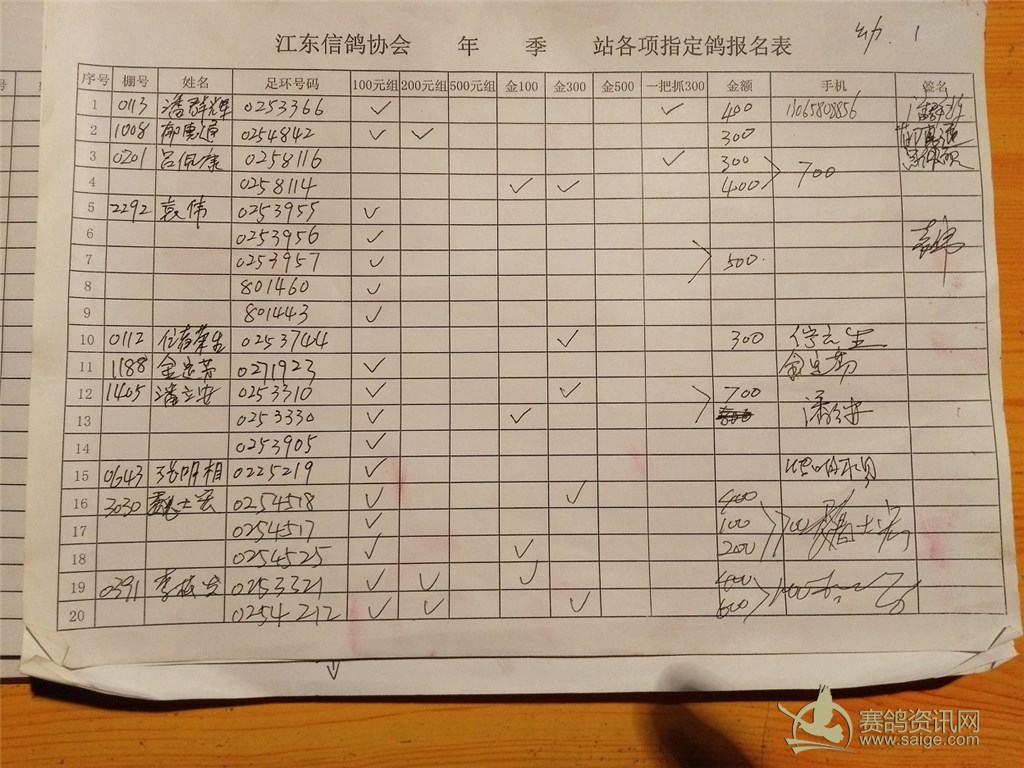 江东信鸽协会 年 季 站各项指定鸽报名表
幼. 1
序号 棚号 姓名 足环号码 100元组 200元组 500元组 金100 金300 金500 一把抓300 金额 手机 签名
1 0113 潘群辉 0253366 ✓ ✓ 400 13065808856
2 1008 0254842 ✓ ✓ 300
3 0201 吕佩康 0258116 ✓ 300
4 0258114 ✓ ✓ 400 700
5 2292 袁伟 0253955 ✓
6 0253956 ✓ 袁伟
7 0253957 ✓ 500.
8 801460 ✓
9 801443 ✓
10 0112 0253744 ✓ 300
11 1188 0271923 ✓
12 1405 潘立安 0253310 ✓ ✓ 700
13 0253330 ✓ ✓ 潘立安
14 0253905 ✓
15 0643 张明相 0225219 ✓
16 3030 魏士宏 0254518 ✓ ✓ 400
17 0254517 ✓ 100 700 魏士宏
18 0254525 ✓ ✓ 200
19 0391 0253321 ✓ ✓ ✓ 400
20 0254212 ✓ ✓ ✓ 600
赛鸽资讯网
www.saige.com